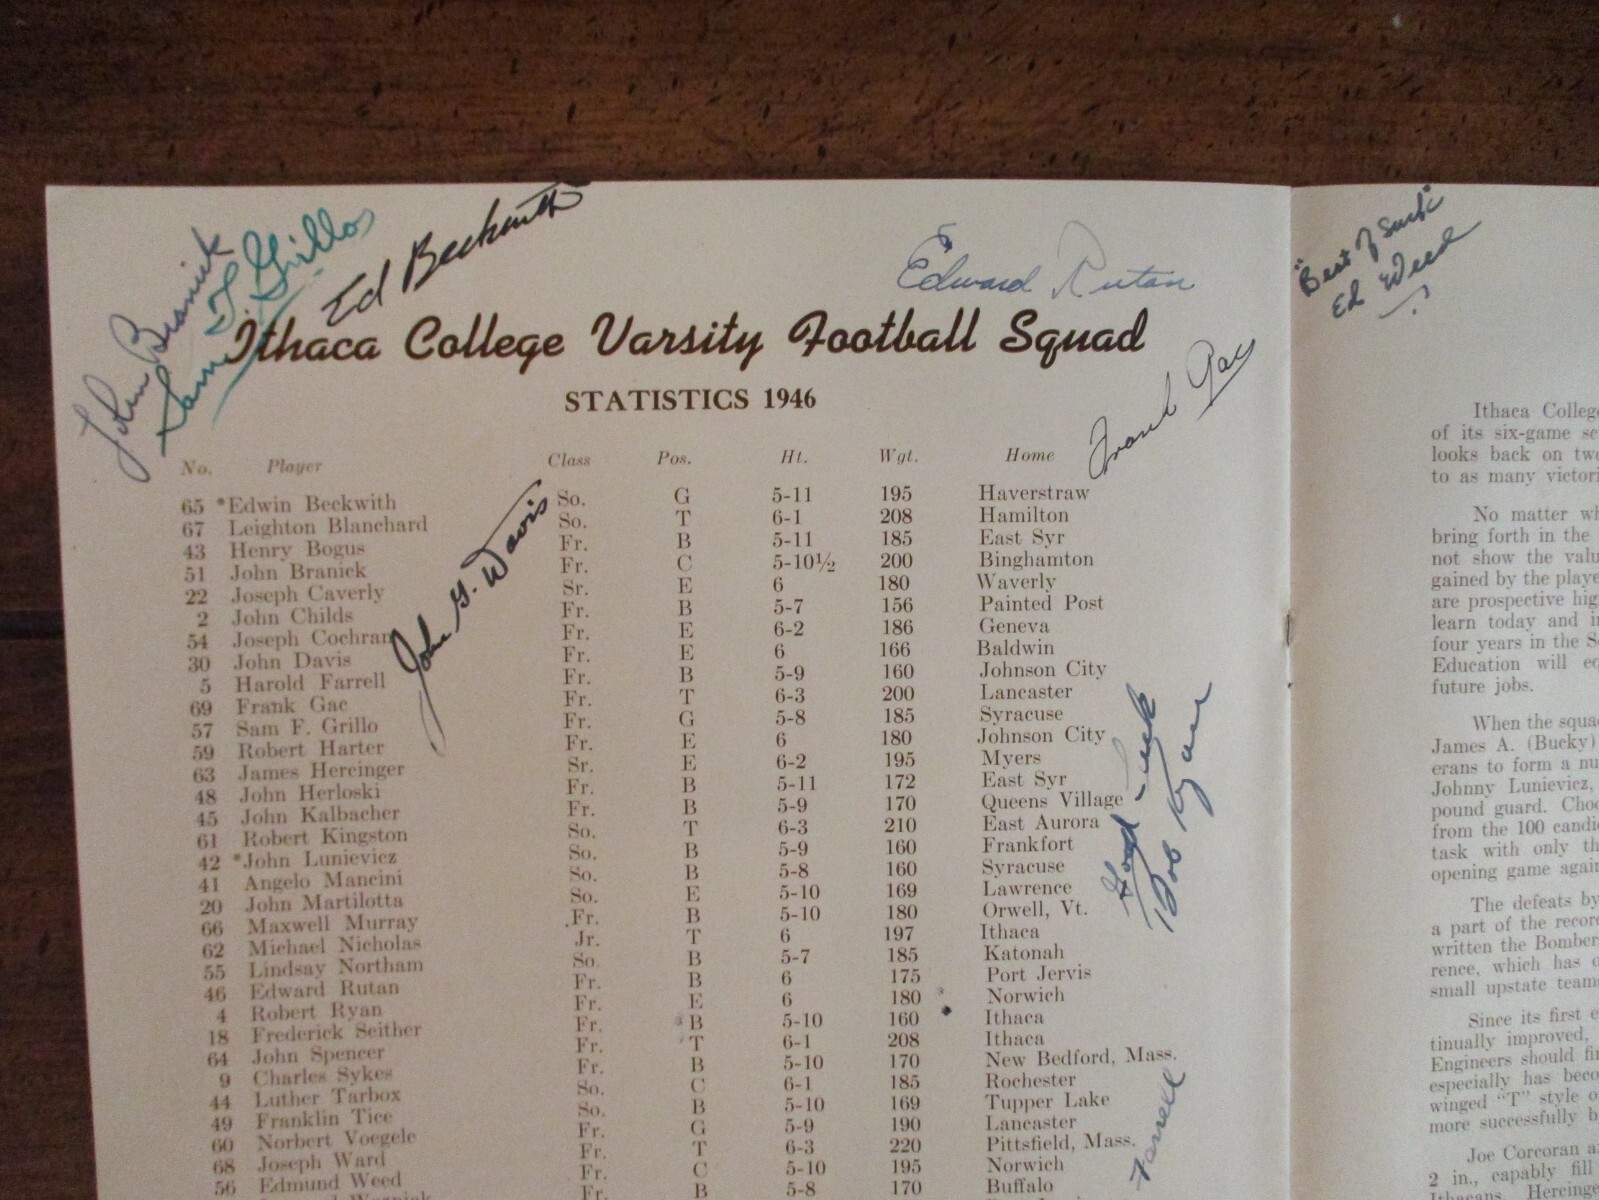 John Branick
Sam F. Grillo
Ed Beckwith
Edward Rutan
Ithaca College Varsity Football Squad
STATISTICS 1946
Frank Gac
No. Player Class Pos. Ht. Wgt. Home
65 *Edwin Beckwith So. G 5-11 195 Haverstraw
67 Leighton Blanchard So. T 6-1 208 Hamilton
43 Henry Bogus Fr. B 5-11 185 East Syr
51 John Branick Fr. C 5-10½ 200 Binghamton
22 Joseph Caverly Sr. E 6 180 Waverly
2 John Childs Fr. B 5-7 156 Painted Post
54 Joseph Cochran Fr. E 6-2 186 Geneva
30 John Davis Fr. E 6 166 Baldwin
5 Harold Farrell Fr. B 5-9 160 Johnson City
69 Frank Gac Fr. T 6-3 200 Lancaster
57 Sam F. Grillo Fr. G 5-8 185 Syracuse
59 Robert Harter Fr. E 6 180 Johnson City
63 James Hercinger Sr. E 6-2 195 Myers
48 John Herloski Fr. B 5-11 172 East Syr
45 John Kalbacher Fr. B 5-9 170 Queens Village
61 Robert Kingston So. T 6-3 210 East Aurora
42 *John Lunievicz So. B 5-9 160 Frankfort
41 Angelo Mancini So. B 5-8 160 Syracuse
20 John Martilotta So. E 5-10 169 Lawrence
66 Maxwell Murray Fr. B 5-10 180 Orwell, Vt.
62 Michael Nicholas Jr. T 6 197 Ithaca
55 Lindsay Northam So. B 5-7 185 Katonah
46 Edward Rutan Fr. B 6 175 Port Jervis
4 Robert Ryan Fr. E 6 180 Norwich
18 Frederick Seither Fr. B 5-10 160 Ithaca
64 John Spencer Fr. T 6-1 208 Ithaca
9 Charles Sykes Fr. B 5-10 170 New Bedford, Mass.
44 Luther Tarbox So. C 6-1 185 Rochester
49 Franklin Tice So. B 5-10 169 Tupper Lake
60 Norbert Voegele Fr. G 5-9 190 Lancaster
68 Joseph Ward Fr. T 6-3 220 Pittsfield, Mass.
56 Edmund Weed Fr. C 5-10 195 Norwich
Fr. B 5-8 170 Buffalo
John G. Davis
Good-luck
Bob Ryan
Farrell
"Best of Luck"
Ed Weed
Ithaca College
of its six-game sc
looks back on two
to as many victori
No matter wh
bring forth in the
not show the valu
gained by the playe
are prospective hig
learn today and i
four years in the S
Education will eq
future jobs.
When the squa
James A. (Bucky)
erans to form a nu
Johnny Lunievicz,
pound guard. Choo
from the 100 candi
task with only th
opening game again
The defeats by
a part of the recor
written the Bomber
rence, which has o
small upstate team
Since its first e
tinually improved,
Engineers should fi
especially has beco
winged "T" style o
more successfully b
Joe Corcoran a
2 in., capably fill
Ithacans. Hercinge